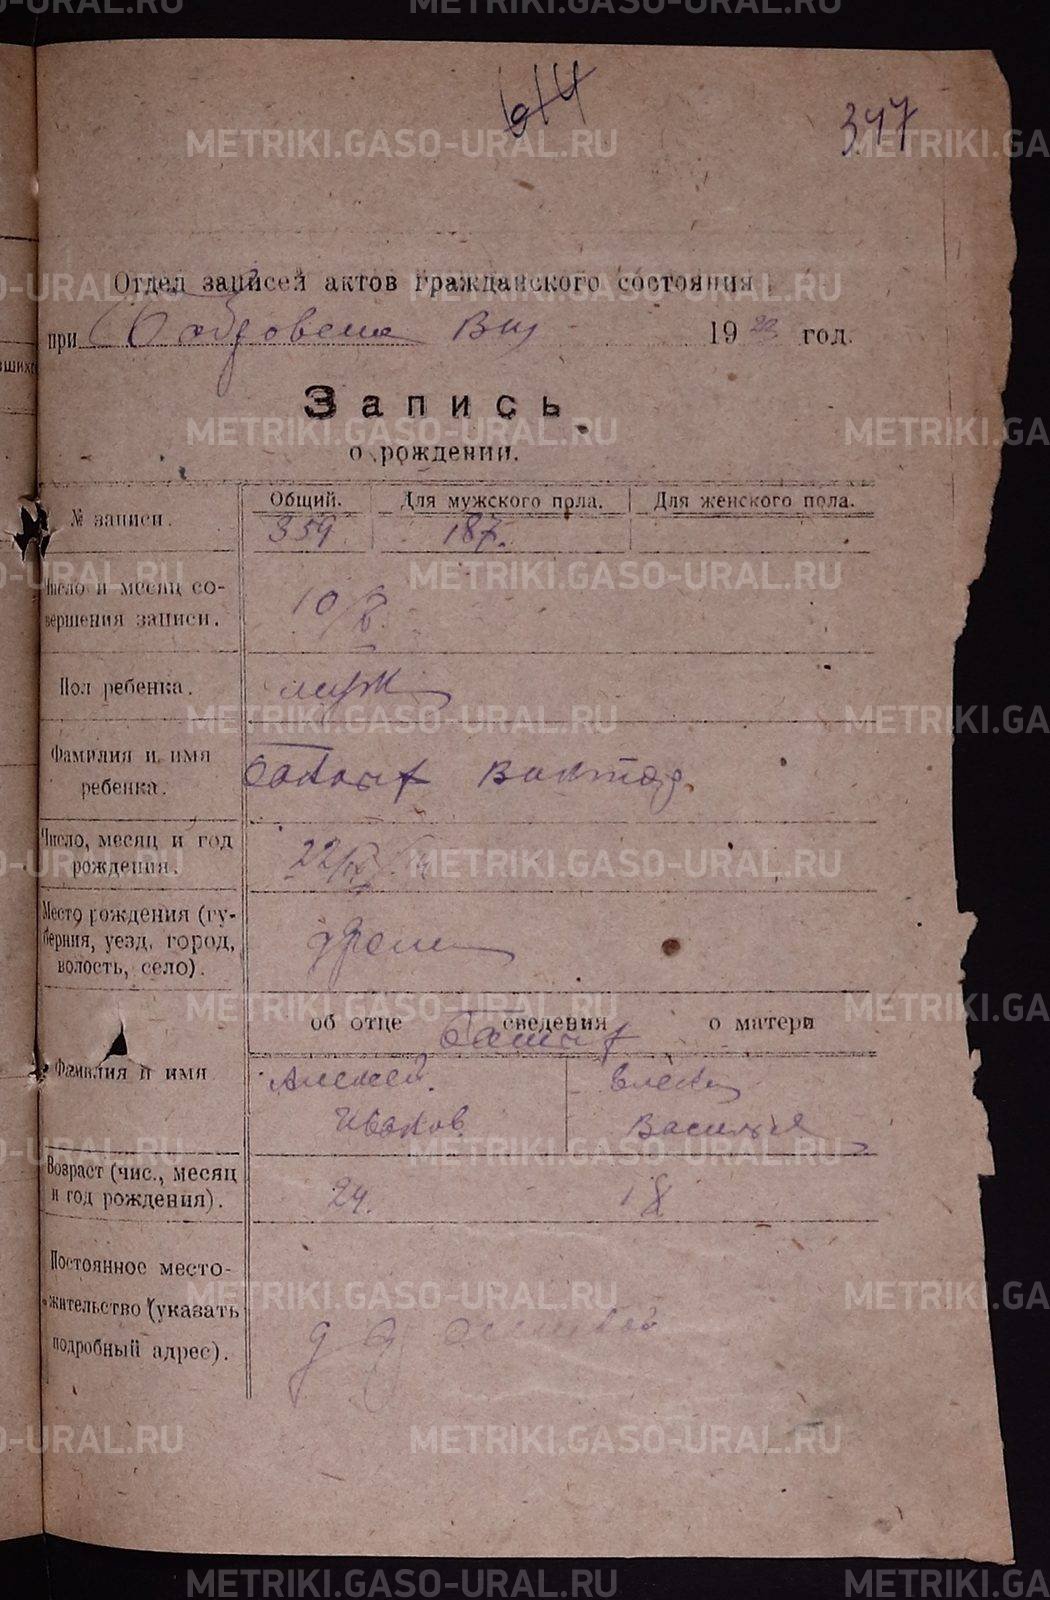 614
347
Отдел записей актов гражданского состояния
при Бобровском Вик 1922 год.
Запись
о рождении.
№ записи.
Общий. Для мужского пола. Для женского пола.
359. 187.
Число и месяц со-
вершения записи.
10/
Пол ребенка.
муж
Фамилия и имя
ребенка.
Виктор
Число, месяц и год
рождения.
22/
Место рождения (гу-
берния, уезд, город,
волость, село).
об отце сведения о матери
Фамилия и имя
Алексей
Иванов
Васильев
Возраст (чис., месяц
и год рождения).
24. 18
Постоянное место-
жительство (указать
подробный адрес).
METRIKI.GASO-URAL.RU